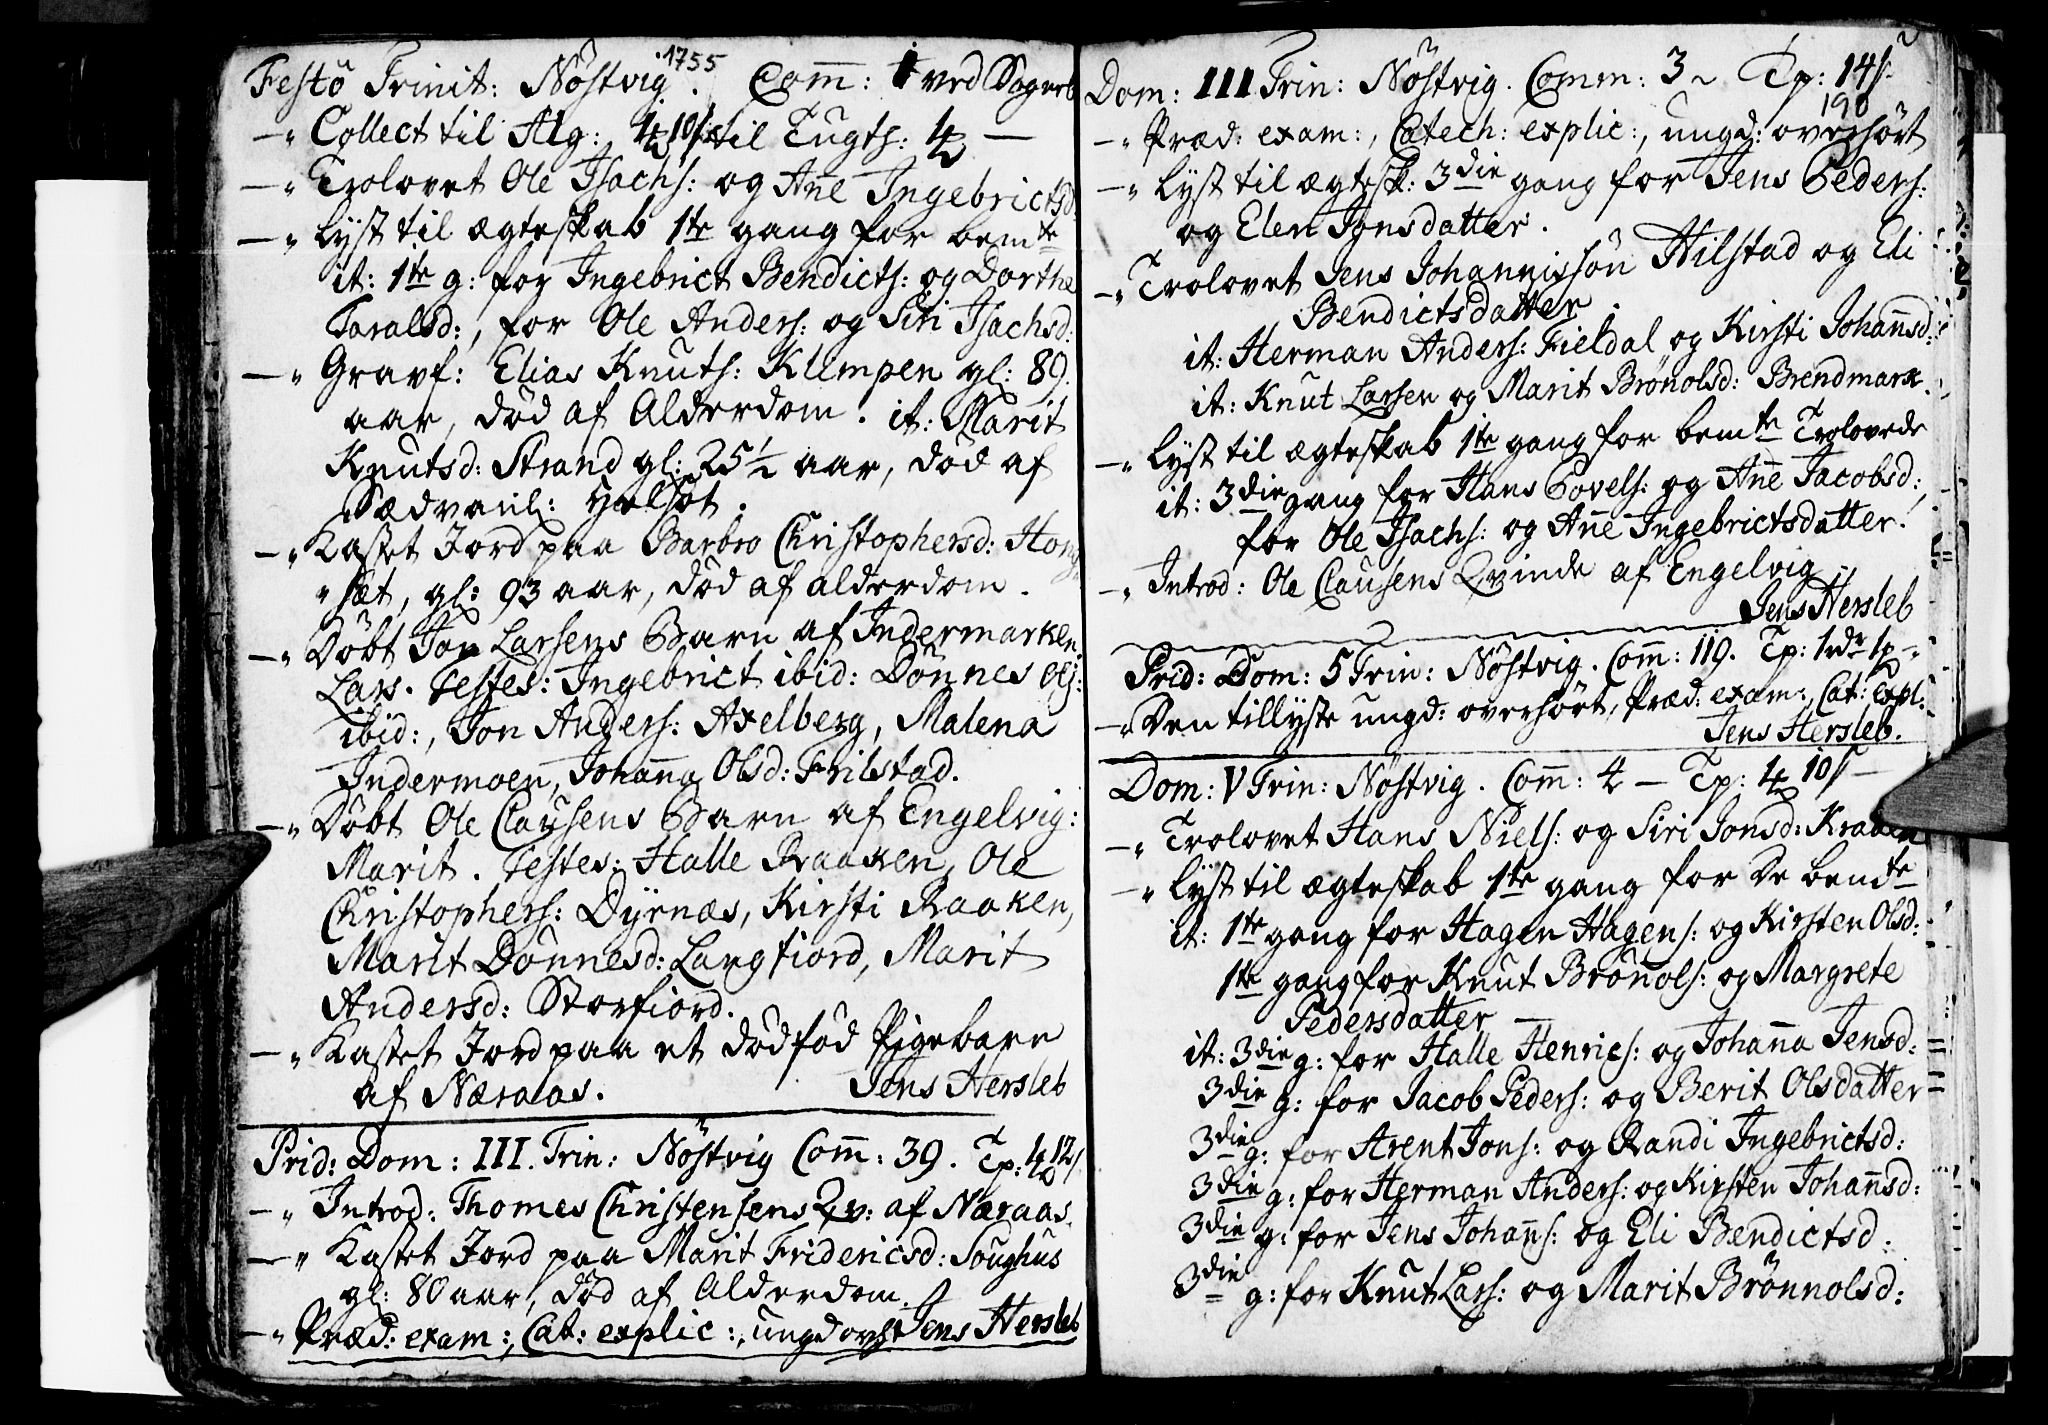 1755
Festö Trinit: Nöstvig. Com̄: 1 ved Sogneb
—" Collect til Alg: 4 10 s til Tugth: 4 —
—" Trolovet Ole Isachs: og An̄e Ingebrictsd
—" Lyst til ægteskab 1te gang for bemte
it: 1te g: for Ingebrict Bendicts: og Dorthe
Taralsd:, for Ole Anders: og Siri Isachsd:
—" Gravf: Elias Knuts: Klimpen gl: 89
aar, död af Alderdom. it: Marit
Knutsd: Strand gl: 25½ aar, död af
Sædvanl:
—" Kastet Jord paa Barbro Christophersd:
"sæt, gl: 93 aar, död af alderdom.
—" Döbt Jon Larsens Barn af Indermarken
Lars. Testes: Ingebrict ibid: Dönnes
ibid:, Jon Anders: Axelberg, Malena
Indermoen, Johan̄a Olsd: Frilstad.
—" Döbt Ole Clausens Barn af Engelvig:
Marit. Testes: Halle Raaken, Ole
Christophers: Dyrnæs, Kirsti Raaken,
Marit Dönnesd: Langfiord, Marit
Andersd: Storfiord.
—" Kastet Jord paa et dödföd Pigebarn
af Næraas. Jens Hersleb
Prid: Dom: III. Trin: Nöstvig Com̄: 39. Tp: 4 12 s
—" Introd: Thomes Christensens Qv: af Næraas.
—" Kastet Jord paa Marit Fridericsd: Soughus
gl: 80 aar, död af Alderdom.
—" Præd: exam:, Cat: explic:, ungd ovht Jens Hersleb
Dom: III Trin: Nöstvig. Comm: 3 Tp: 14 s
190
—" Præd: exam:, Catech: explic:, ungd: overhört
—" Lyst til ægtesk: 3die gang for Jens Peders:
og Elen Jonsdatter.
—" Trolovet Jens Johannissön Hilstad og Eli
Bendictsdatter.
it: Herman Anders: Fieldal og Kirsti Johan̄sd:
it: Knut Larsen og Marit Brönolsd: Brendmark.
—" Lyst til ægteskab 1te gang for bemte Trolovede
it: 3die gang for Hans Povels: og An̄e Jacobsd:,
for Ole Isachs: og An̄e Ingebrictsdatter.
—" Introd: Ole Clausens Qvinde af Engelvig.
Jens Hersleb
Prid: Dom: 5 Trin: Nöstvig. Com̄: 119. Tp: 1rdr
—" Den tillyste ungd: overhört, Præd: exam:, Cat: Expl:
Jens Hersleb.
Dom: V Trin: Nöstvig. Com̄: 4 — Tp: 4 10 s —
—" Trolovet Hans Niels: og Siri Jonsd:
—" Lyst til ægteskab 1te gang for De bemte
it: 1te gang for Hagen Hagens: og Kirsten Olsd:
1te gang for Knut Brönols: og Margrete
Pedersdatter —
it: 3die g: for Halle Henrics: og Johan̄a Jensd:
3die g: for Jacob Peders: og Berit Olsdatter
3die g: for Arent Jons: og Randi Ingebrictsd:
3die g: for Herman Anders: og Kirsten Johan̄sd:
3die g: for Jens Johan̄s: og Eli Bendictsd:
3die g: for Knut Lars: og Marit Brönnolsd: